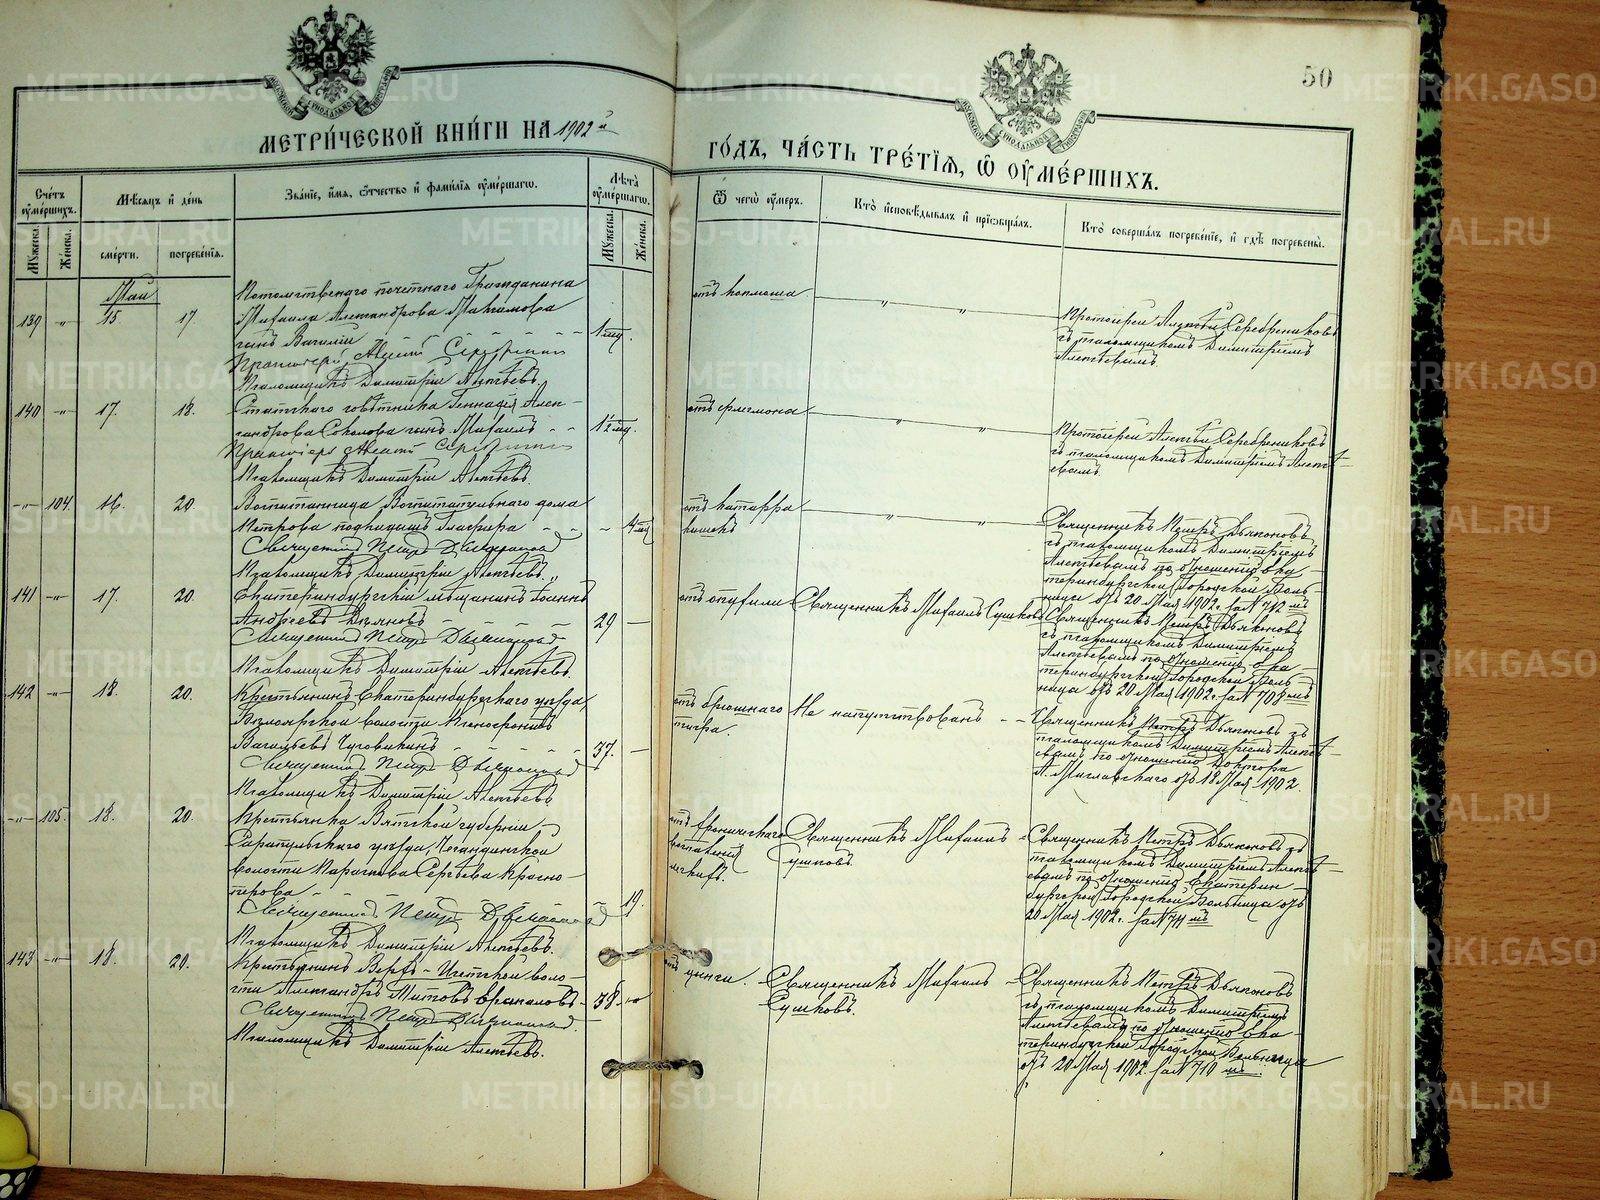 МЕТРИ́ЧЕСКОЙ КНИ́ГИ НА 1902й
ГО́ДЪ, ЧА́СТЬ ТРЕ́ТІЯ, Ѿ ОУМЕ́РШИХЪ.
50
Сче́тъ оуме́ршихъ.
Мѣ́сяцъ и день
Зва́ніе, и́мя, о́тчество и фами́лія оуме́ршаго.
Лѣ́та оуме́ршаго.
Му́жеска.
Же́нска.
сме́рти.
погребе́нія.
Му́жеска.
Же́нска.
Ѿ чего̀ оу́меръ.
Кто̀ исповѣ́дывалъ и приѡбща́лъ.
Кто̀ соверша́лъ погребе́ніе, и гдѣ̀ погребены̀.
Май
139 -"- 15. 17
Потомственаго почетнаго Гражданина
Михаила Александрова
сынъ Василій
1 мц.
Протоіерей Алексій
Псаломщикъ Димитрій Алексѣевъ.
отъ коклюша
"
"
Протоіерей Алексій Серебрениковъ
съ псаломщикомъ Димитріемъ
Алексѣевымъ.
140 -"- 17. 18.
Статскаго совѣтника Геннадія Алек-
сандрова Соколова сынъ Михаилъ
1½ мц.
Протоіерей Алексій
Псаломщикъ Димитрій Алексѣевъ.
отъ флегмона
"
"
Протоіерей Алексій Серебрениковъ
съ псаломщикомъ Димитріемъ Алексѣ-
евымъ.
-"- 104. 16. 20.
Воспитанница Воспитательнаго дома
Петрова подкидышъ Глафира
4 мц
Священникъ Петръ Дьяконовъ
Псаломщикъ Димитрій Алексѣевъ.
отъ катарра
кишекъ
"
"
Священникъ Петръ Дьяконовъ
съ псаломщикомъ Димитріемъ
Алексѣевымъ по отношенію Ека-
теринбургской Городской Боль-
ницы отъ 20 Мая 1902 г. за № 712 мъ
141 -"- 17. 20.
Екатеринбургскій мѣщанинъ Іоаннъ
Андреевъ
29 -
Священникъ Петръ Дьяконовъ
Псаломщикъ Димитрій Алексѣевъ.
отъ опухоли
Священникъ Михаилъ Сушковъ
Священникъ Петръ Дьяконовъ
съ псаломщикомъ Димитріемъ
Алексѣевымъ по отношенію Ека-
теринбургской Городской Боль-
ницы отъ 20 Мая 1902 г. за № 708 мъ
142 -"- 18. 20.
Крестьянинъ Екатеринбургскаго уѣзда,
Бѣлоярской волости Ксенофонтъ
Васильевъ
37. -
Священникъ Петръ Дьяконовъ
Псаломщикъ Димитрій Алексѣевъ
отъ брюшнаго
тифа.
Не напутствованъ
Священникъ Петръ Дьяконовъ съ
псаломщикомъ Димитріемъ Алексѣ-
евымъ по отношенію Доктора
А. Миславскаго отъ 18 Мая 1902.
-"- 105. 18. 20.
Крестьянка Вятской губерніи
Сарапульскаго уѣзда,
волости Параскева Сергѣева Красно-
перова
- 19.
Священникъ Петръ Дьяконовъ
Псаломщикъ Димитрій Алексѣевъ.
отъ хроническаго
воспаленія
Священникъ Михаилъ
Сушковъ.
Священникъ Петръ Дьяконовъ съ
псаломщикомъ Димитріемъ Алексѣ-
евымъ по отношенію Екатерин-
бургской Городской Больницы отъ
20 Мая 1902 г. за № 711 мъ
143 -"- 18. 20.
Крестьянинъ Верхъ-Исетской воло-
сти Александръ Титовъ
38. -
Священникъ Петръ Дьяконовъ
Псаломщикъ Димитрій Алексѣевъ.
цынги.
Священникъ Михаилъ
Сушковъ.
Священникъ Петръ Дьяконовъ
съ псаломщикомъ Димитріемъ
Алексѣевымъ по отношенію Ека-
теринбургской Городской Больницы
отъ 20 Мая 1902 г. за № 710 мъ.
METRIKI.GASO-URAL.RU